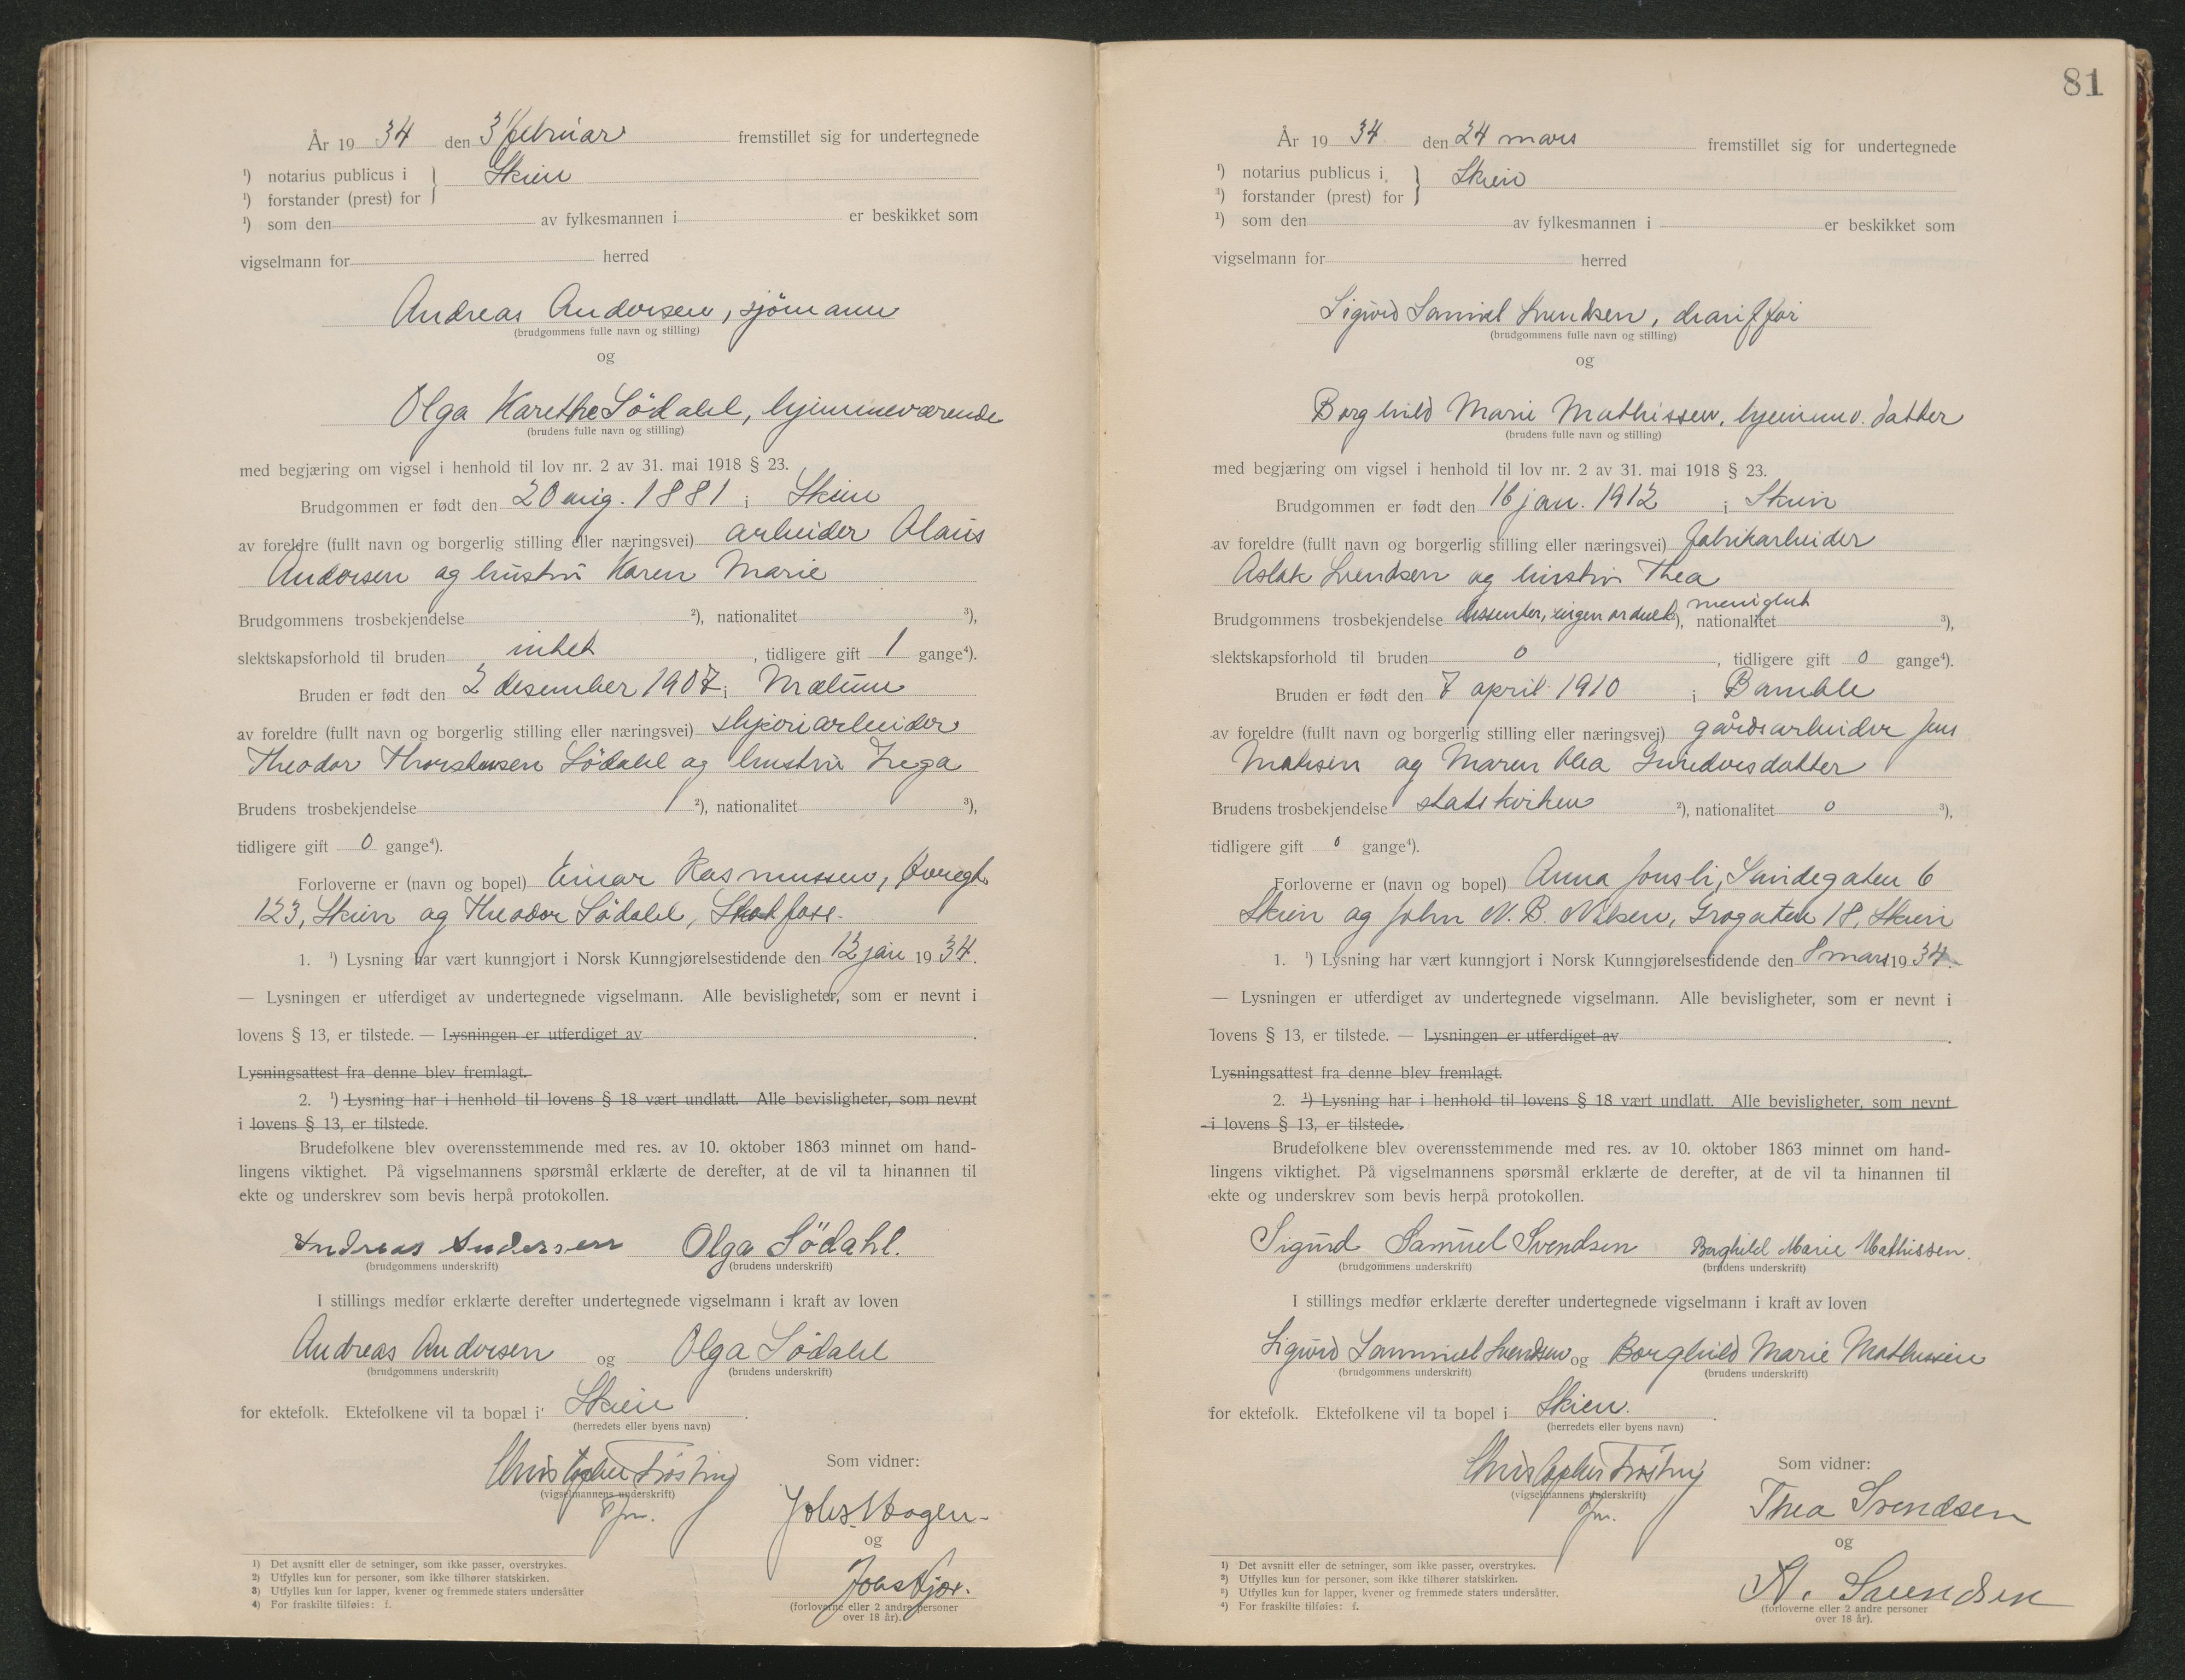 År 19 34 den 3 februar fremstillet sig for undertegnede
¹) notarius publicus i } Skien
¹) forstander (prest) for
¹) som den av fylkesmannen i er beskikket som
vigselmann for herred
Andreas Andersen, sjömann
(brudgommens fulle navn og stilling)
og
Olga Karethe Södahl, hjemmeværende
(brudens fulle navn og stilling)
med begjæring om vigsel i henhold til lov nr. 2 av 31. mai 1918 § 23.
Brudgommen er født den 20 aug. 1881 i Skien
av foreldre (fullt navn og borgerlig stilling eller næringsvei) arbeider Olaus
Andersen og hustru Karen Marie
Brudgommens trosbekjendelse ²), nationalitet ³),
slektskapsforhold til bruden intet , tidligere gift 1 gange⁴).
Bruden er født den 2 desember 1907 i Mælum
av foreldre (fullt navn og borgerlig stilling eller næringsvei)
Theodor Södahl og hustru Inga
Brudens trosbekjendelse ²), nationalitet ³),
tidligere gift 0 gange⁴).
Forloverne er (navn og bopel) Einar Rasmussen,
123, Skien og Theodor Södahl, Skotfoss.
1. ¹) Lysning har vært kunngjort i Norsk Kunngjørelsestidende den 12 jan 19 34.
— Lysningen er utferdiget av undertegnede vigselmann. Alle bevisligheter, som er nevnt i
lovens § 13, er tilstede. — Lysningen er utferdiget av .
Lysningsattest fra denne blev fremlagt.
2. ¹) Lysning har i henhold til lovens § 18 vært undlatt. Alle bevisligheter, som nevnt
i lovens § 13, er tilstede.
Brudefolkene blev overensstemmende med res. av 10. oktober 1863 minnet om hand-
lingens viktighet. På vigselmannens spørsmål erklærte de derefter, at de vil ta hinannen til
ekte og underskrev som bevis herpå protokollen.
Andreas Andersen Olga Södahl.
(brudgommens underskrift) (brudens underskrift)
I stillings medfør erklærte derefter undertegnede vigselmann i kraft av loven
Andreas Andersen og Olga Södahl
(brudgommens underskrift) (brudens underskrift)
for ektefolk. Ektefolkene vil ta bopæl i Skien .
(herredets eller byens navn)
Christopher
(vigselmannens underskrift)
Som vidner:
Johs. Hagen
og
(forloverne eller 2 andre personer
over 18 år).
1) Det avsnitt eller de setninger, som ikke passer, overstrykes.
2) Utfylles kun for personer, som ikke tilhører statskirken.
3) Utfylles kun for lapper, kvener og fremmede staters undersåtter
4) For fraskilte tilføies: f.
81
År 19 34 den 24 mars fremstillet sig for undertegnede
¹) notarius publicus i } Skien
¹) forstander (prest) for
¹) som den av fylkesmannen i er beskikket som
vigselmann for herred
Sigurd Samuel Svendsen,
(brudgommens fulle navn og stilling)
og
Borghild Marie Mathissen, hjemmev. datter
(brudens fulle navn og stilling)
med begjæring om vigsel i henhold til lov nr. 2 av 31. mai 1918 § 23.
Brudgommen er født den 16 jan. 1912 i Skien
av foreldre (fullt navn og borgerlig stilling eller næringsvei) fabrikarbeider
Aslak Svendsen og hustru Thea
Brudgommens trosbekjendelse dissenter, ingen ordnet menighet ²), nationalitet ³),
slektskapsforhold til bruden 0 , tidligere gift 0 gange⁴).
Bruden er født den 7 april 1910 i Bamble
av foreldre (fullt navn og borgerlig stilling eller næringsvej) gårdsarbeider Jens
og Maren
Brudens trosbekjendelse statskirken ²), nationalitet 0 ³),
tidligere gift 0 gange⁴).
Forloverne er (navn og bopel) Anna Jonsli, 6
Skien og John N. B. Nilsen, Grogaten 18, Skien
1. ¹) Lysning har vært kunngjort i Norsk Kunngjørelsestidende den 8 mars 19 34.
— Lysningen er utferdiget av undertegnede vigselmann. Alle bevisligheter, som er nevnt i
lovens § 13, er tilstede. — Lysningen er utferdiget av .
Lysningsattest fra denne blev fremlagt.
2. ¹) Lysning har i henhold til lovens § 18 vært undlatt. Alle bevisligheter, som nevnt
i lovens § 13, er tilstede.
Brudefolkene blev overensstemmende med res. av 10. oktober 1863 minnet om hand-
lingens viktighet. På vigselmannens spørsmål erklærte de derefter, at de vil ta hinannen til
ekte og underskrev som bevis herpå protokollen.
Sigurd Samuel Svendsen Borghild Marie Mathissen.
(brudgommens underskrift) (brudens underskrift)
I stillings medfør erklærte derefter undertegnede vigselmann i kraft av loven
Sigurd Sammuel Svendsen og Borghild Marie Mathissen
(brudgommens underskrift) (brudens underskrift)
for ektefolk. Ektefolkene vil ta bopel i Skien. .
(herredets eller byens navn)
Christopher
(vigselmannens underskrift)
Som vidner:
Thea Svendsen
og
A. Svendsen
(forloverne eller 2 andre personer
over 18 år).
1) Det avsnitt eller de setninger, som ikke passer, overstrykes.
2) Utfylles kun for personer, som ikke tilhører statskirken.
3) Utfylles kun for lapper, kvener og fremmede staters undersåtter.
4) For fraskilte tilføies: f.